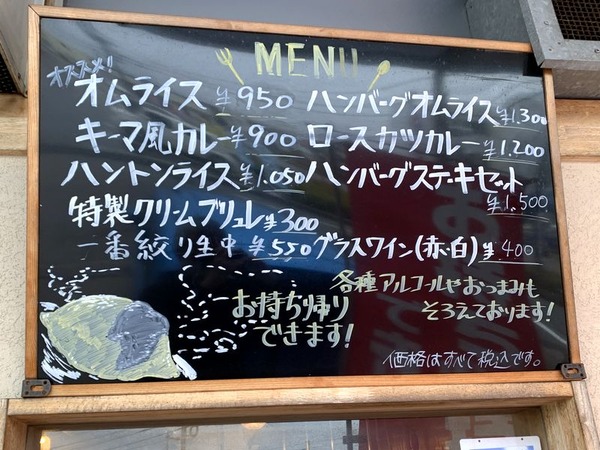 MENU
オススメ!!
オムライス ¥950 ハンバーグオムライス ¥1.300
キーマ風カレー ¥900 ロースカツカレー ¥1.200
ハントンライス ¥1.050 ハンバーグステーキセット ¥1.500
特製クリームブリュレ ¥300
一番絞り生中 ¥550 グラスワイン(赤・白) ¥400
お持ち帰り
できます!
各種アルコールやおつまみも
そろえております!
価格はすべて税込です。